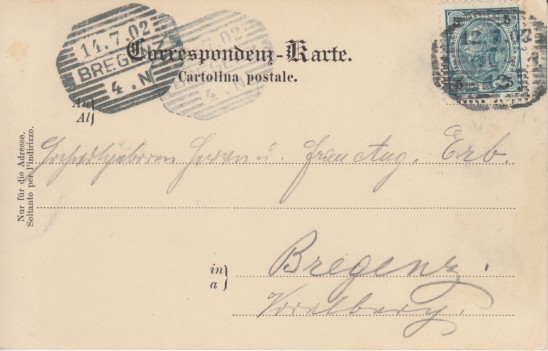 14.7.02
BREGENZ
4.N
Correspondenz-Karte.
Cartolina postale.
5 5
An
Al
Nur für die Adresse.
Soltanto per l'indirizzo.
Hochwohlgeboren Herrn u. Frau Aug. Erb.
in
a
Bregenz.
Vorarlberg.